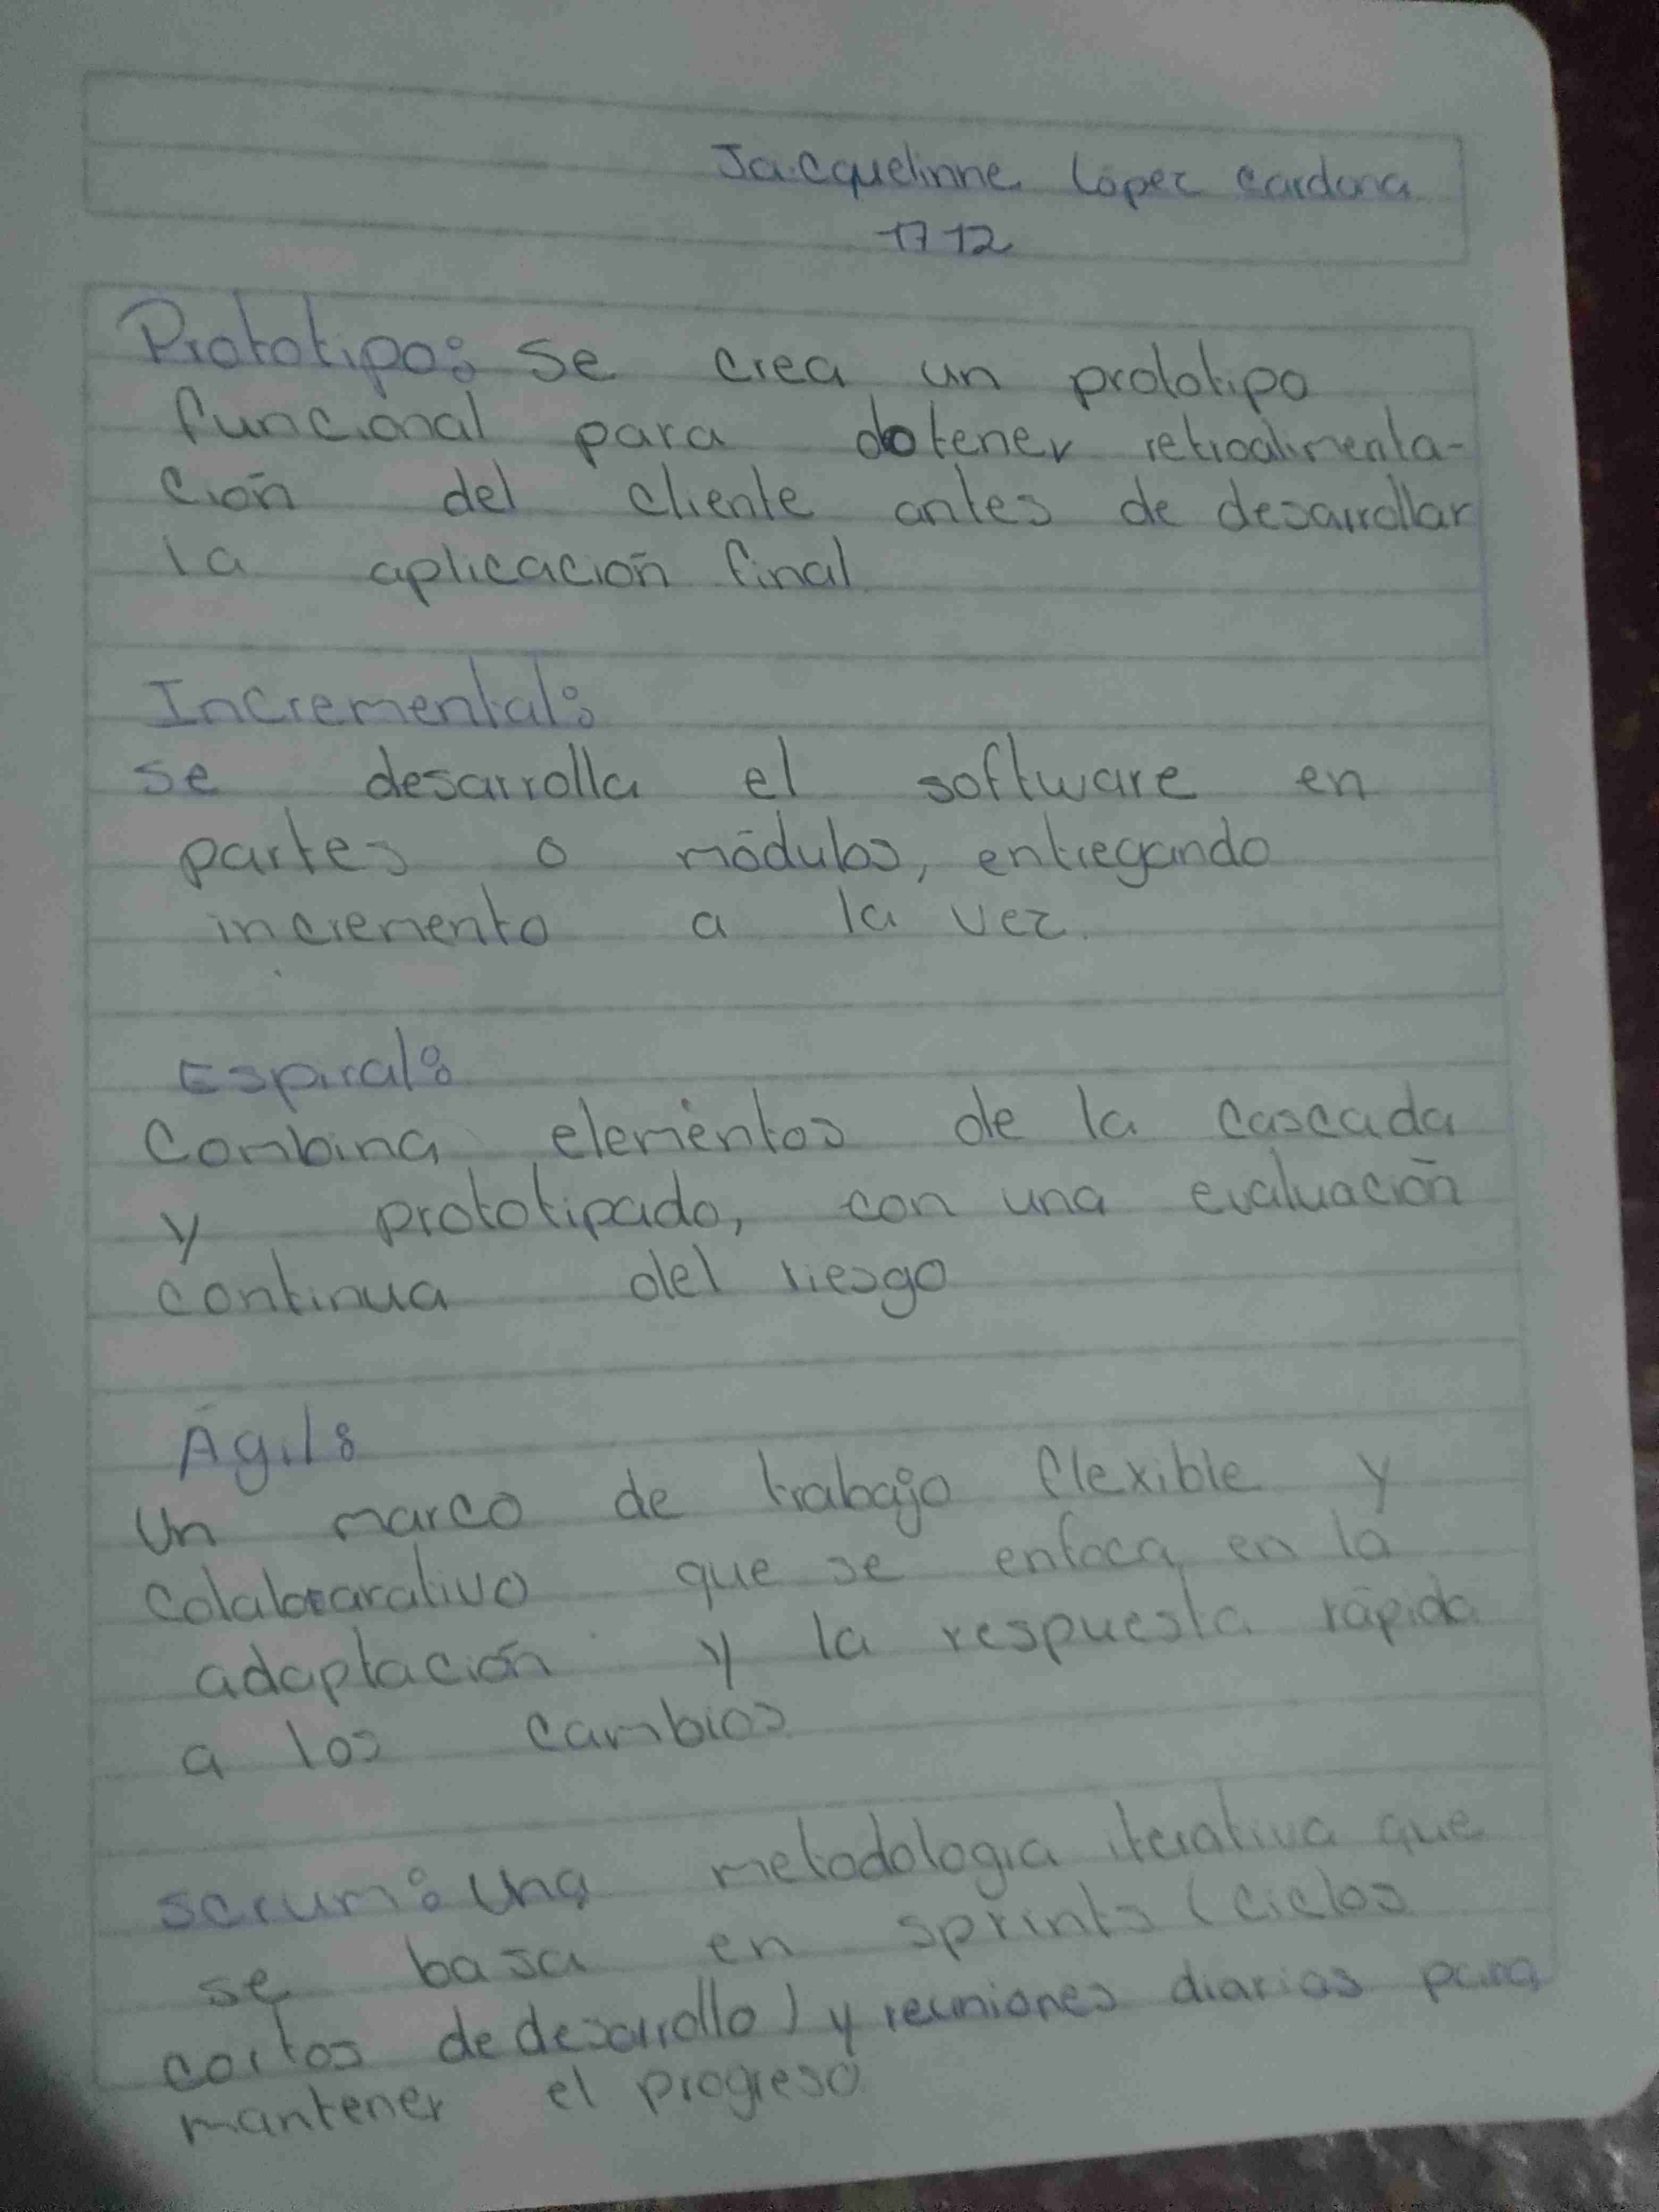 Jacquelinne López Cardona
1712
Prototipo: Se crea un prototipo
funcional para obtener retroalimenta-
ción del cliente antes de desarrollar
la aplicación final
Incremental:
se desarrolla el software en
partes o módulos, entregando
incremento a la vez.
Espiral:
Combina elementos de la cascada
y prototipado, con una evaluación
continua del riesgo
Ágil:
Un marco de trabajo flexible y
colaborativo que se enfoca en la
adaptación y la respuesta rápida
a los cambios
scrum: Una metodologia iterativa que
se basa en sprints (ciclos
cortos de desarrollo) y reuniones diarias para
mantener el progreso